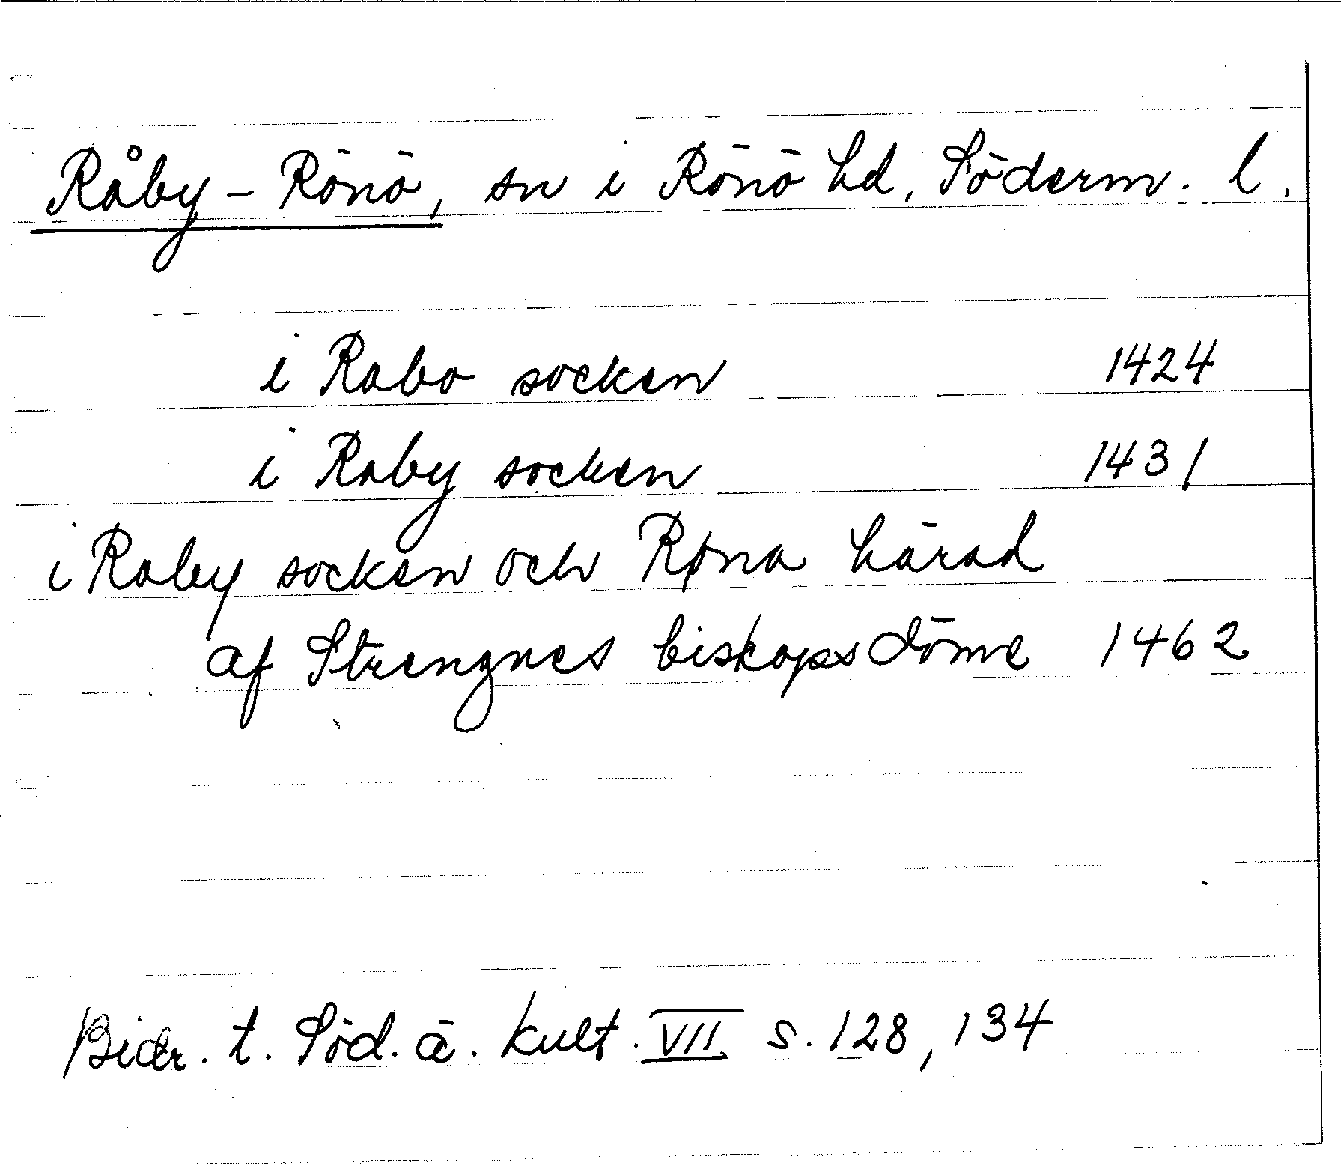 Råby-Rönö, sn i Rönö hd, Söderm. l.
i Rabo socken 1424
i Raby socken 1431
i Raby socken och Røna härad
af Strengnes biskopsdöme 1462
Bidr. t. Söd. ä. kult. VII s. 128, 134